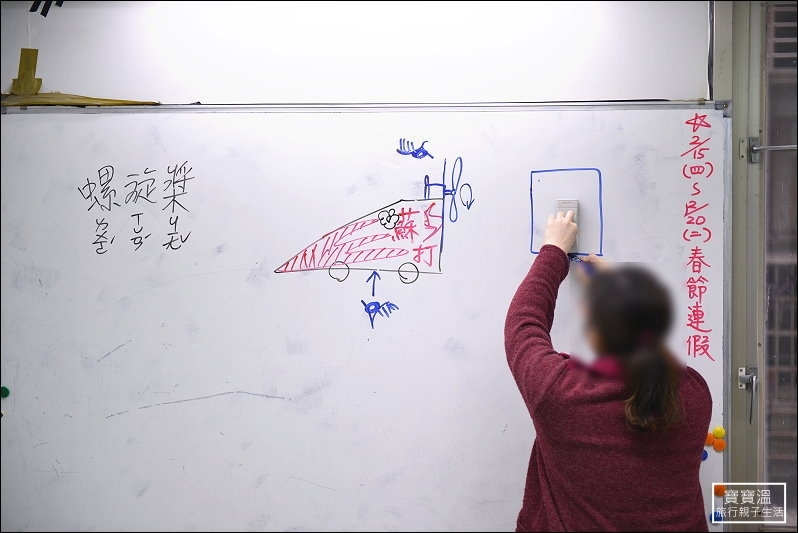 螺旋槳
ㄌㄨㄛˊ ㄒㄩㄢˊ ㄐㄧㄤˇ
蘇
打
2/15(四)~2/20(二)春節連假
寶寶溫
旅行親子生活